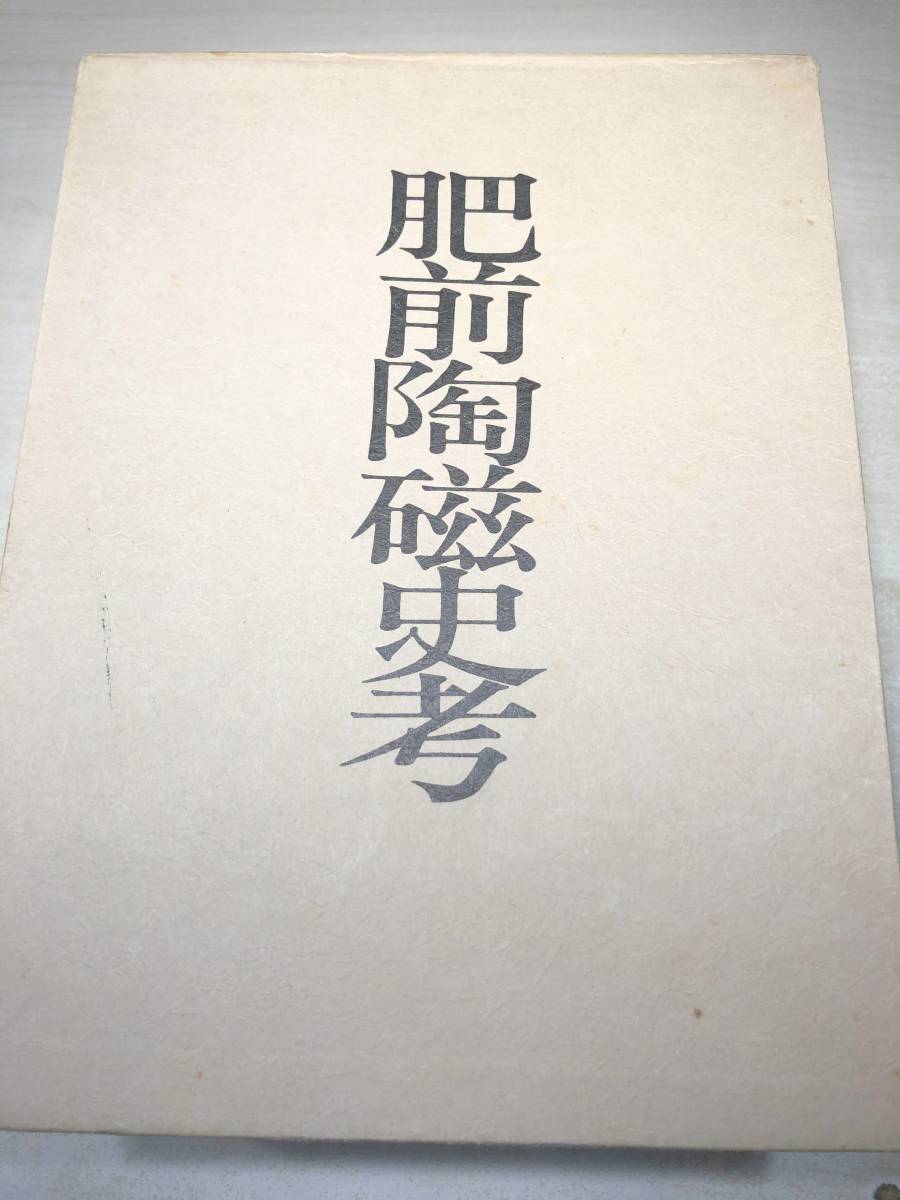 肥前陶磁史考